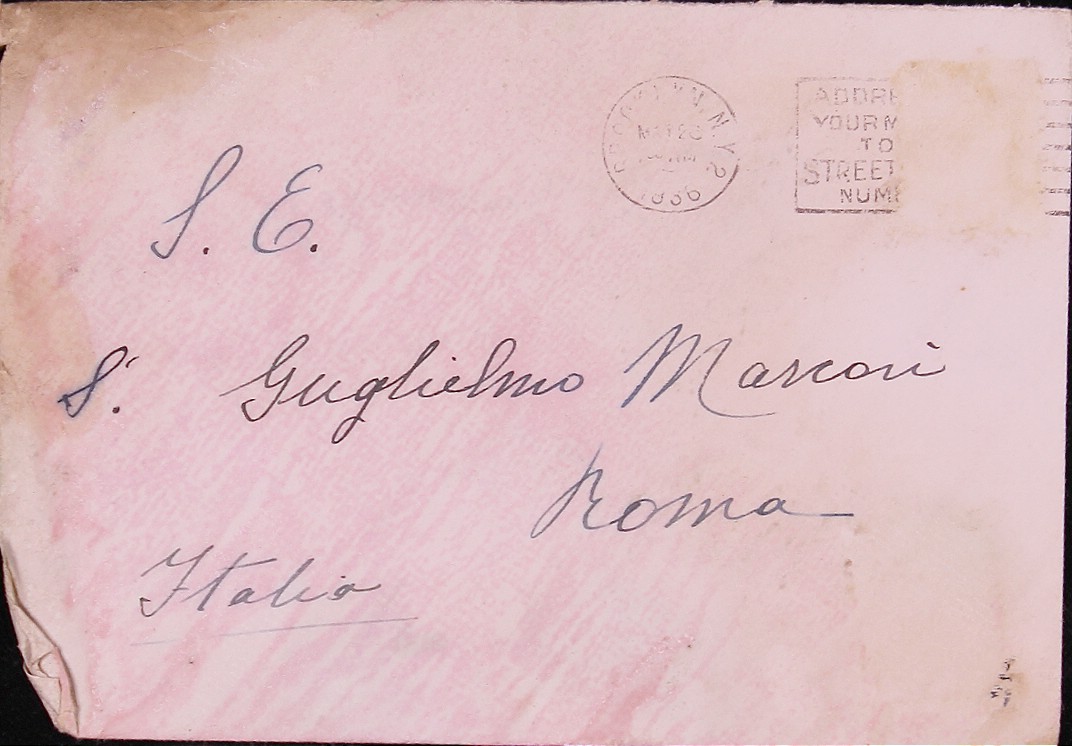 BROOKLYN, N.Y. 2
1936
ADDRE
YOUR M
TO
STREET
NUM
S. E.
S. Guglielmo Marconi
Roma
Italia